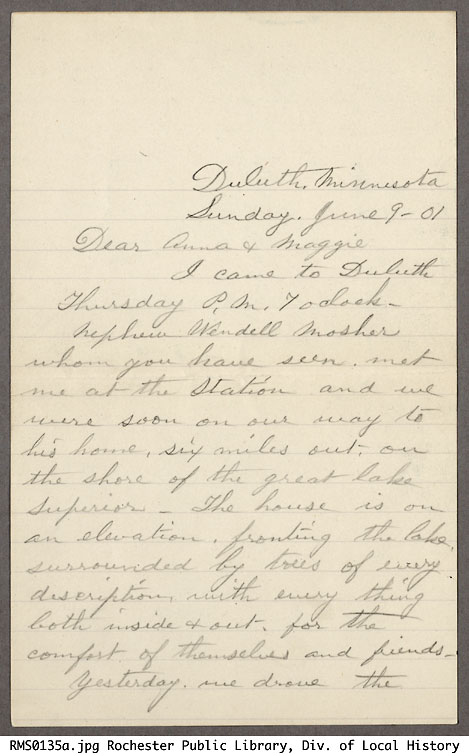 Duluth, Minnesota
Sunday. June 9-01
Dear Anna & Maggie
I came to Duluth
Thursday P.M. 7 oclock-
Nephew Wendell Mosher
whom you have seen. met
me at the Station and we
were soon on our way to
his home, six miles out, on
the shore of the great lake
Superior - The house is on
an elevation, fronting the lake,
surrounded by trees of every
description, with every thing
both inside & out, for the
comfort of themselves and friends-
Yesterday. we drove the
RMS0135a.jpg Rochester Public Library, Div. of Local History